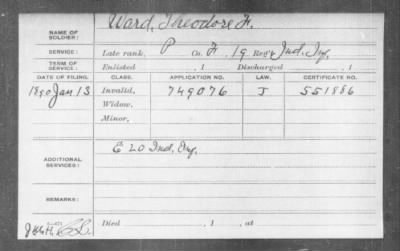 NAME OF SOLDIER: Ward, Theodore F.
SERVICE: Late rank, P Co. F. 19 Reg't Ind. Inf.
TERM OF SERVICE: Enlisted , 1 Discharged , 1
DATE OF FILING. CLASS. APPLICATION NO. LAW. CERTIFICATE NO.
1890 Jan 13 Invalid, 749076 J 551886
Widow,
Minor,
ADDITIONAL SERVICES: E 20 Ind. Inf.
REMARKS:
Died , 1 , at